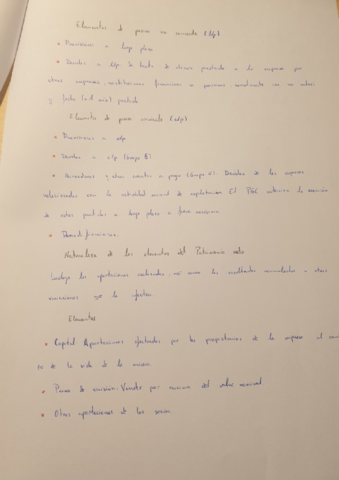 Elementos de pasivo no corriente (L/p)
• Provisiones a largo plazo
• Deudas a L/p Se trata de dinero prestado a la empresa por
otras empresas, instituciones financieras o personas
fecha (+1 año) pactada
Elementos de pasivo corriente (c/p)
• Provisiones a c/p
• Deudas a c/p (Grupo 5)
• Acreedores y otras cuentas a pagar (Grupo 4). Deudas de las empresas
relacionadas con la actividad normal de explotación El PGC
de estas partidas a largo plazo
•
Naturaleza de los elementos del Patrimonio neto
Incluye las aportaciones realizadas, así como los resultados acumulados u otras
variaciones que le afecten
Elementos
• Capital Aportaciones efectuadas por los propietarios de la empresa al
de la vida de la misma.
• Prima de emisión. del valor nominal
• Otras aportaciones de los socios